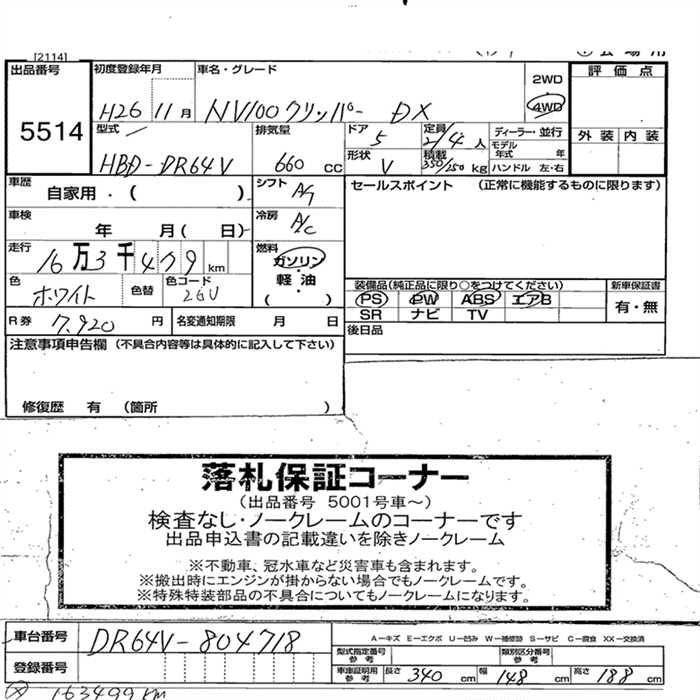 [2114]
出品番号 5514
初度登録年月 H26 11月
車名・グレード NV100クリッパー DX
2WD
4WD
評価点
外装 内装
型式 HBD-DR64V
排気量 660 cc
ドア 5
形状 V
定員 2/4 人
積載 350/250 kg
ディーラー・並行
モデル年式 年
ハンドル 左・右
車歴 自家用・( )
シフト
冷房 A/C
セールスポイント (正常に機能するものに限ります)
車検 年 月( 日)
走行 16万3千479km
燃料 ガソリン・軽油
( )
色 ホワイト
色替
色コード 26U
装備品(純正品に限り○をつけてください)
PS PW ABS エアB
SR ナビ TV
新車保証書
有・無
R券 7,920 円
名変通知期限 月 日
後日品
注意事項申告欄 (不具合内容等は具体的に記入して下さい)
修復歴 有 (箇所 )
落札保証コーナー
(出品番号 5001号車~)
検査なし・ノークレームのコーナーです
出品申込書の記載違いを除きノークレーム
※不動車、冠水車など災害車も含まれます。
※搬出時にエンジンが掛からない場合でもノークレームです。
※特殊特装部品の不具合についてもノークレームになります。
車台番号 DR64V-804718
A-キズ E-エクボ U-凹み W-補修跡 S-サビ C-腐食 XX-交換済
登録番号
型式指定番号 参考
類別区分番号 参考
車庫証明用 参考 長さ 340 cm 幅 148 cm 高さ 188 cm
163499KM